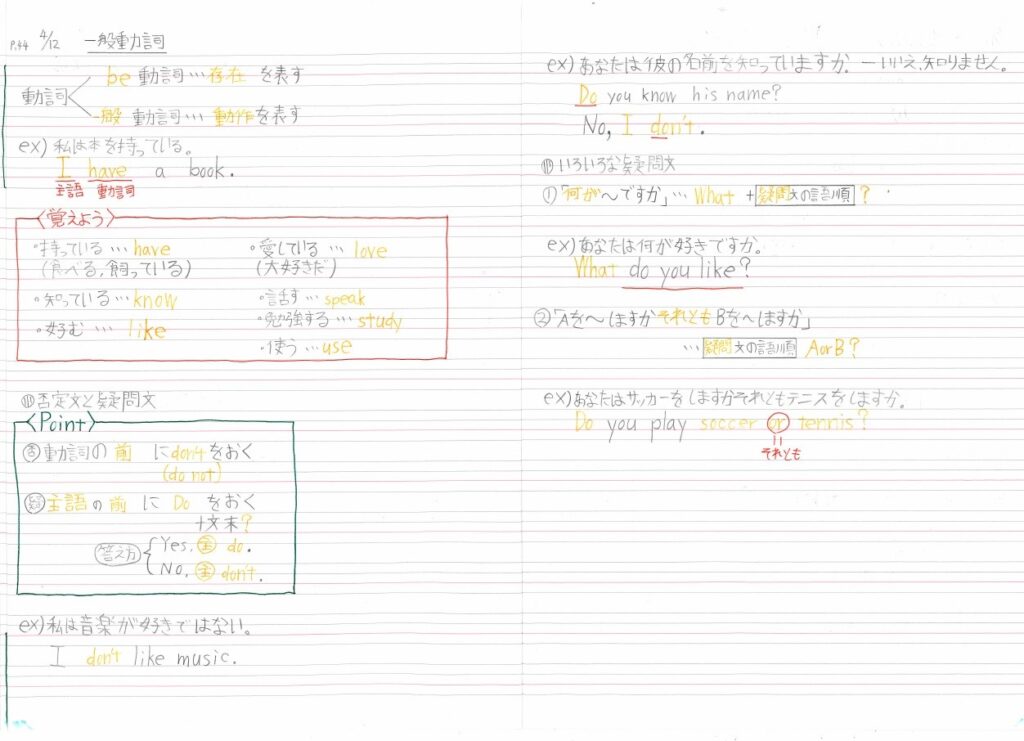 P.44 4/12 一般動詞
動詞
be 動詞…存在 を表す
一般 動詞…動作を表す
ex) 私は本を持っている。
I have a book.
主語 動詞
〈覚えよう〉
・持っている…have
(食べる,飼っている)
・知っている…know
・好む…like
・愛している…love
(大好きだ)
・話す…speak
・勉強する…study
・使う…use
否定文と疑問文
〈Point〉
否 動詞の 前 にdon'tをおく
(do not)
疑 主語 の 前 に Do をおく
+文末?
答え方
Yes, 主 do.
No, 主 don't.
ex) 私は音楽が好きではない。
I don't like music.
ex) あなたは彼の名前を知っていますか。 ーいいえ、知りません。
Do you know his name?
No, I don't.
いろいろな疑問文
① 「何が〜ですか」…What +疑問文の語順?
ex) あなたは何が好きですか。
What do you like?
② 「Aを〜しますかそれともBを〜しますか」
…疑問文の語順 A or B?
ex) あなたはサッカーをしますかそれともテニスをしますか。
Do you play soccer or tennis?
それとも